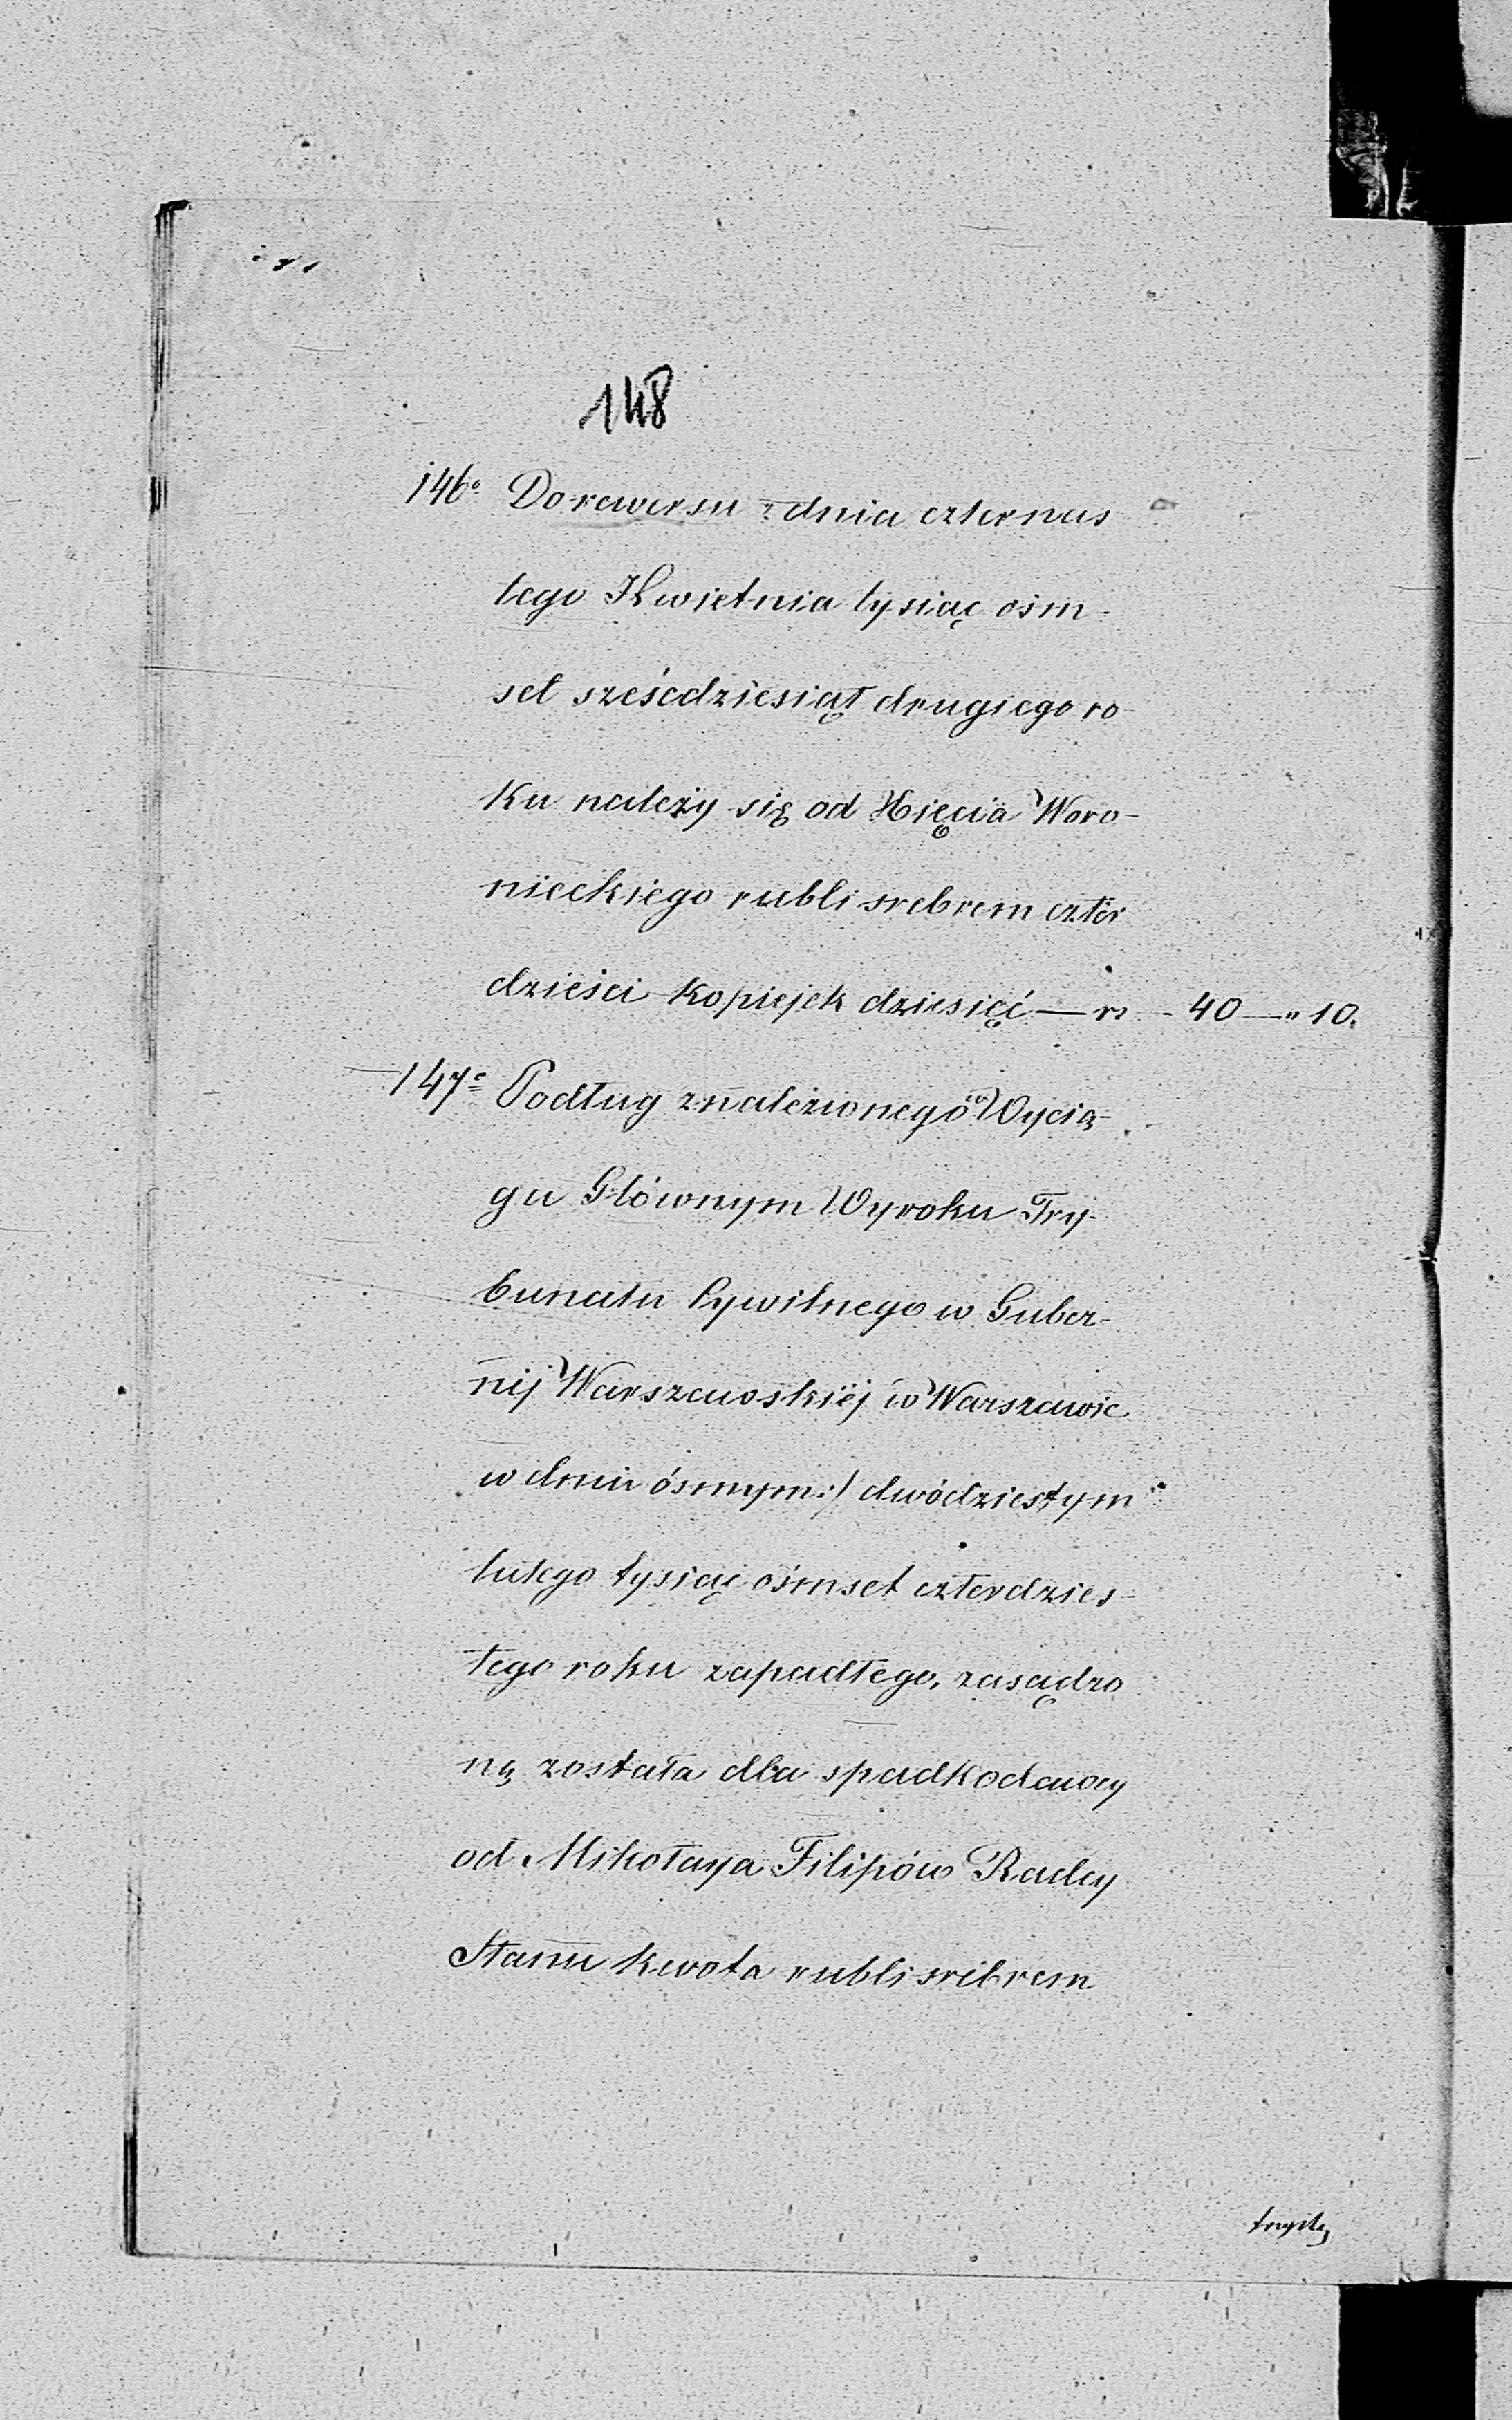 148
146o Do rewersu z dnia czternas
tego Kwietnia tysiąc ośm-
set sześćdziesiąt drugiego ro-
ku należy się od Xięcia Woro-
nieckiego rubli srebrem czter
dzieści kopiejek dziesięć — rs - 40 — " 10.
147o Podług znalezionego w Wycią-
gu Głównym Wyroku Try-
bunału Cywilnego w Guber-
nij Warszawskiéj w Warszawie
w dniu ósmym :/ dwódziestym
lutego tysiąc ośmset czterdzies-
tego roku zapadłego, zasądzo
ną została dla spadkodawcy
od Mikołaya Filipów Radcy
Stanu kwota rubli srebrem